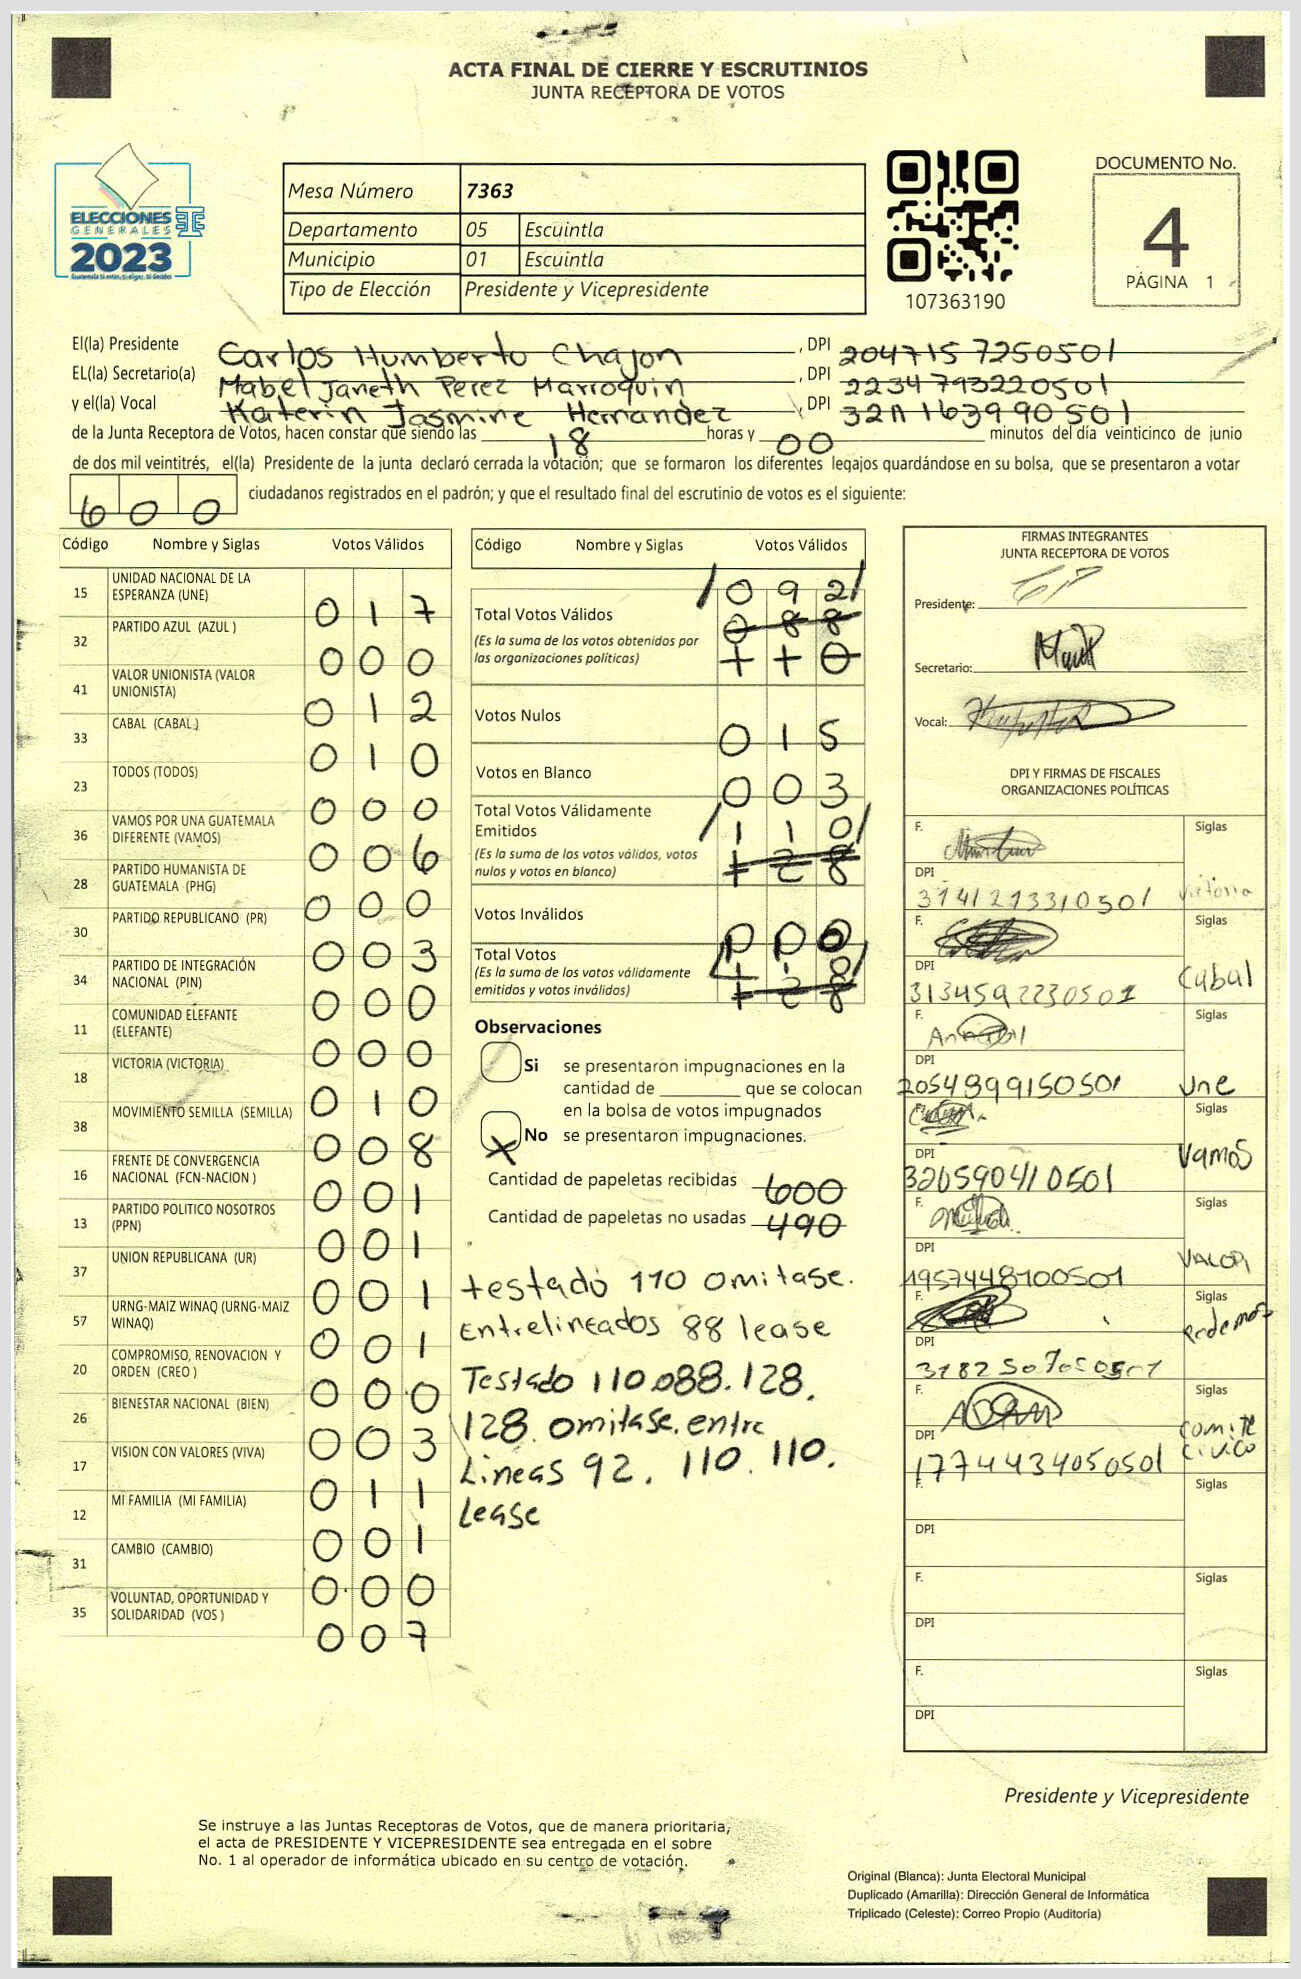 ACTA FINAL DE CIERRE Y ESCRUTINIOS
JUNTA RECEPTORA DE VOTOS
ELECCIONES
GENERALES
2023
Mesa Número 7363
Departamento 05 Escuintla
Municipio 01 Escuintla
Tipo de Elección Presidente y Vicepresidente
107363190
DOCUMENTO No.
4
PÁGINA 1
El(la) Presidente Carlos Humberto Chajon, DPI 2047157250501
EL(la) Secretario(a) Mabel Janeth Perez Marroquin, DPI 2234793220501
y el(la) Vocal Katerin Jasmine Hernandez, DPI 3211163990501
de la Junta Receptora de Votos, hacen constar que siendo las 18 horas y 00 minutos del día veinticinco de junio
de dos mil veintitrés, el(la) Presidente de la junta declaró cerrada la votación; que se formaron los diferentes legajos guardándose en su bolsa, que se presentaron a votar
600 ciudadanos registrados en el padrón; y que el resultado final del escrutinio de votos es el siguiente:
Código Nombre y Siglas Votos Válidos
15 UNIDAD NACIONAL DE LA ESPERANZA (UNE) 017
32 PARTIDO AZUL (AZUL ) 000
41 VALOR UNIONISTA (VALOR UNIONISTA) 012
33 CABAL (CABAL ) 010
23 TODOS (TODOS) 000
36 VAMOS POR UNA GUATEMALA DIFERENTE (VAMOS) 006
28 PARTIDO HUMANISTA DE GUATEMALA (PHG) 000
30 PARTIDO REPUBLICANO (PR) 003
34 PARTIDO DE INTEGRACIÓN NACIONAL (PIN) 000
11 COMUNIDAD ELEFANTE (ELEFANTE) 000
18 VICTORIA (VICTORIA) 010
38 MOVIMIENTO SEMILLA (SEMILLA) 008
16 FRENTE DE CONVERGENCIA NACIONAL (FCN-NACION ) 001
13 PARTIDO POLITICO NOSOTROS (PPN) 001
37 UNION REPUBLICANA (UR) 001
57 URNG-MAIZ WINAQ (URNG-MAIZ WINAQ) 001
20 COMPROMISO, RENOVACION Y ORDEN (CREO ) 000
26 BIENESTAR NACIONAL (BIEN) 003
17 VISION CON VALORES (VIVA) 011
12 MI FAMILIA (MI FAMILIA) 001
31 CAMBIO (CAMBIO) 000
35 VOLUNTAD, OPORTUNIDAD Y SOLIDARIDAD (VOS ) 007
Código Nombre y Siglas Votos Válidos
Total Votos Válidos 092
088
(Es la suma de los votos obtenidos por
las organizaciones políticas) 110
Votos Nulos 015
Votos en Blanco 003
Total Votos Válidamente
Emitidos 110
(Es la suma de los votos válidos, votos
nulos y votos en blanco) 128
Votos Inválidos 000
Total Votos 110
(Es la suma de los votos válidamente
emitidos y votos inválidos) 128
Observaciones
Si se presentaron impugnaciones en la
cantidad de que se colocan
en la bolsa de votos impugnados
X No se presentaron impugnaciones.
Cantidad de papeletas recibidas 600
Cantidad de papeletas no usadas 490
testado 110 omitase.
Entrelineados 88 lease
Testado 110.088.128.
128. omitase. entre
Lineas 92. 110. 110.
Lease
FIRMAS INTEGRANTES
JUNTA RECEPTORA DE VOTOS
Presidente:
Secretario:
Vocal:
DPI Y FIRMAS DE FISCALES
ORGANIZACIONES POLÍTICAS
F. Siglas
DPI
3141213310501 Victoria
F. Siglas
DPI
3134592230501 Cabal
F. Siglas
DPI
2054899150501 une
F. Siglas
DPI
320590410501 Vamos
F. Siglas
DPI
1957448100501 VALOR
F. Siglas
DPI
Podemos
F. Siglas
DPI
1774434050501 comite civico
F. Siglas
DPI
F. Siglas
DPI
F. Siglas
DPI
Presidente y Vicepresidente
Se instruye a las Juntas Receptoras de Votos, que de manera prioritaria,
el acta de PRESIDENTE Y VICEPRESIDENTE sea entregada en el sobre
No. 1 al operador de informática ubicado en su centro de votación.
Original (Blanca): Junta Electoral Municipal
Duplicado (Amarilla): Dirección General de Informática
Triplicado (Celeste): Correo Propio (Auditoría)